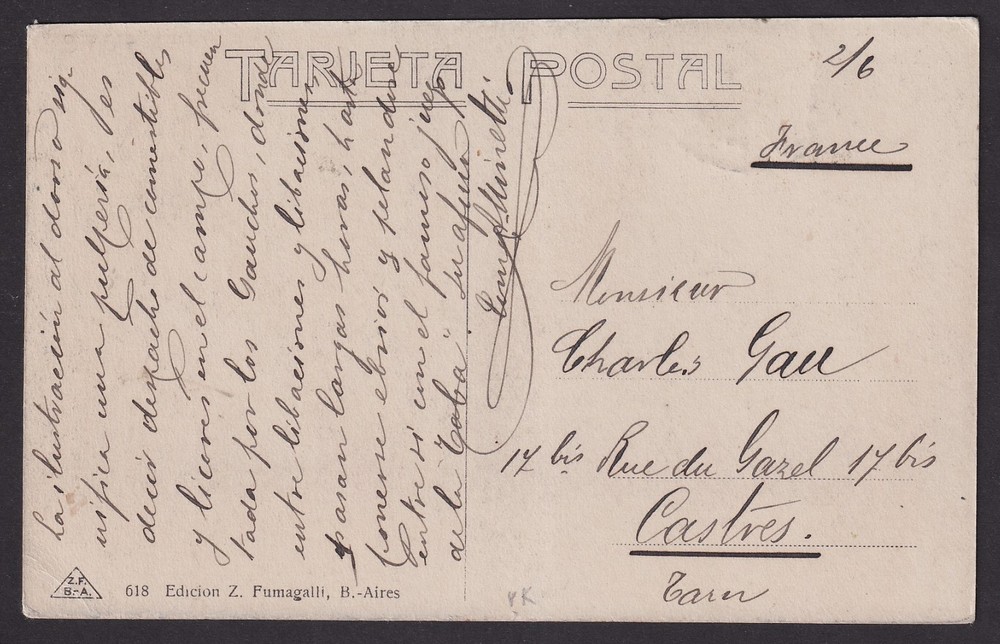 TARJETA POSTAL
2/6
France
La ilustración al dorso sig-
nifica una pulpería, es
decir despacho de comestibles
y licores en el campo, frecuen
tada por los Gauchos, donde
entre libaciones y libaciones
pasan largas horas, hasta
ponerse ebrios y pelandose
entre si con el famoso juego
de la "Taba"
Monsieur
Charles Gau
17 bis Rue du Gazel 17 bis
Castres.
Tarn
Z.F.
B.-A.
618 Edicion Z. Fumagalli, B.-Aires
YK